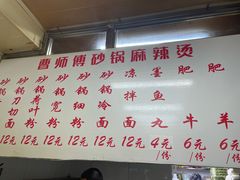 曹师傅砂锅麻辣烫
砂锅刀切面 12元
砂锅荷叶粉 12元
砂锅宽粉 12元
砂锅细粉 12元
砂锅冷面 12元
凉拌面 12元
墨鱼丸 4元/份
肥牛 6元/份
肥羊 6元/份